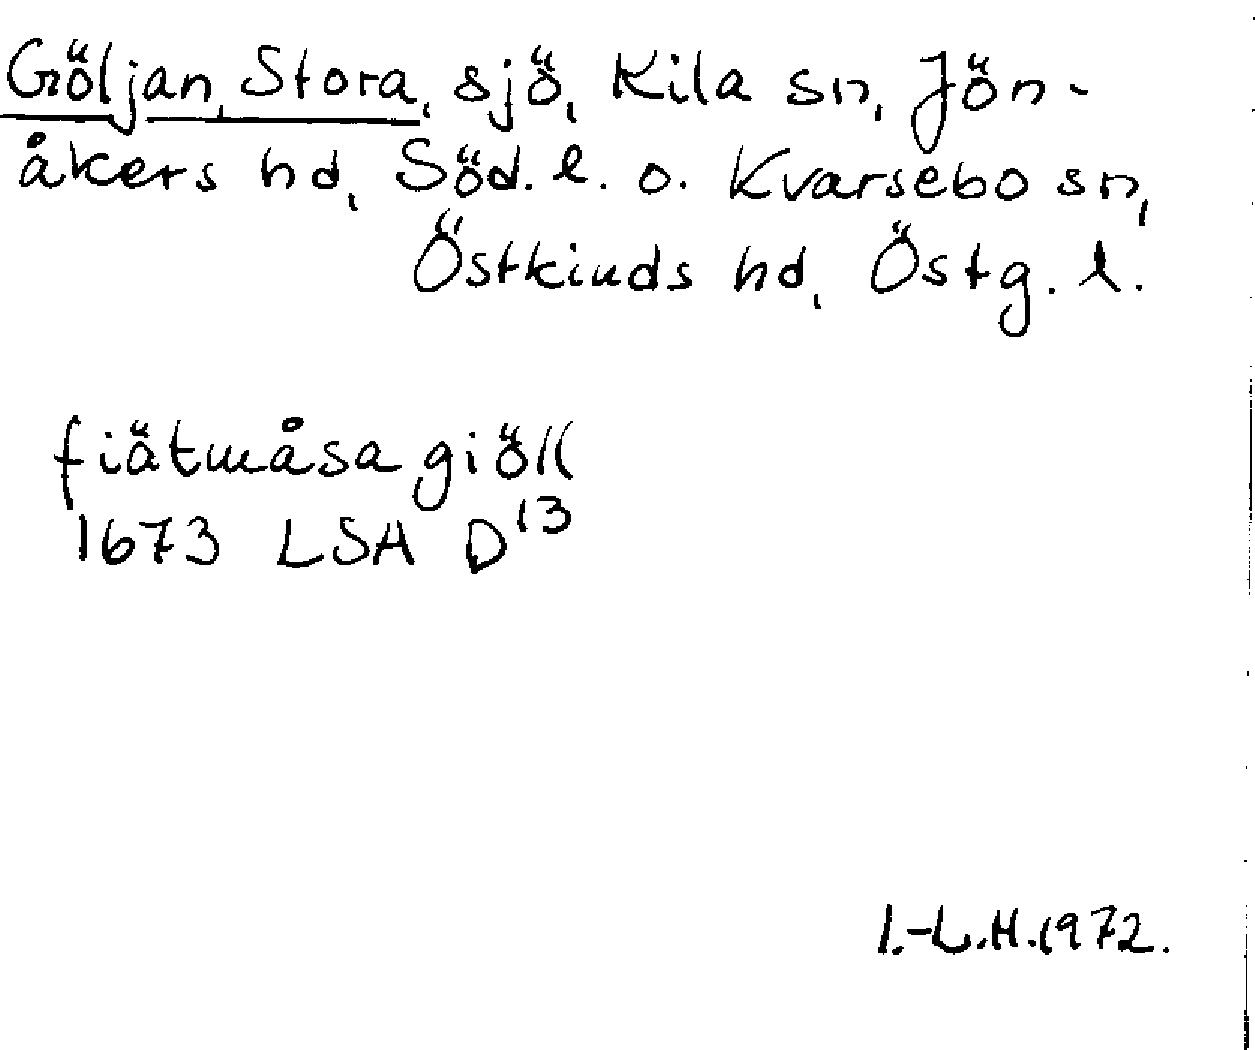 Göljan, Stora, sjö, Kila sn, Jön-
åkers hd, Söd. l. o. Kvarsebo sn,
Östkinds hd, Östg. l.
fiätmåsa giöll
1673 LSA D13
I.-L.H.1972.